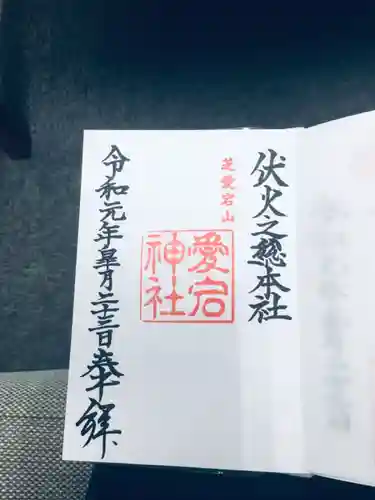 伏火之總本社
芝愛宕山
愛宕
神社
令和元年皐月二十三日奉拜